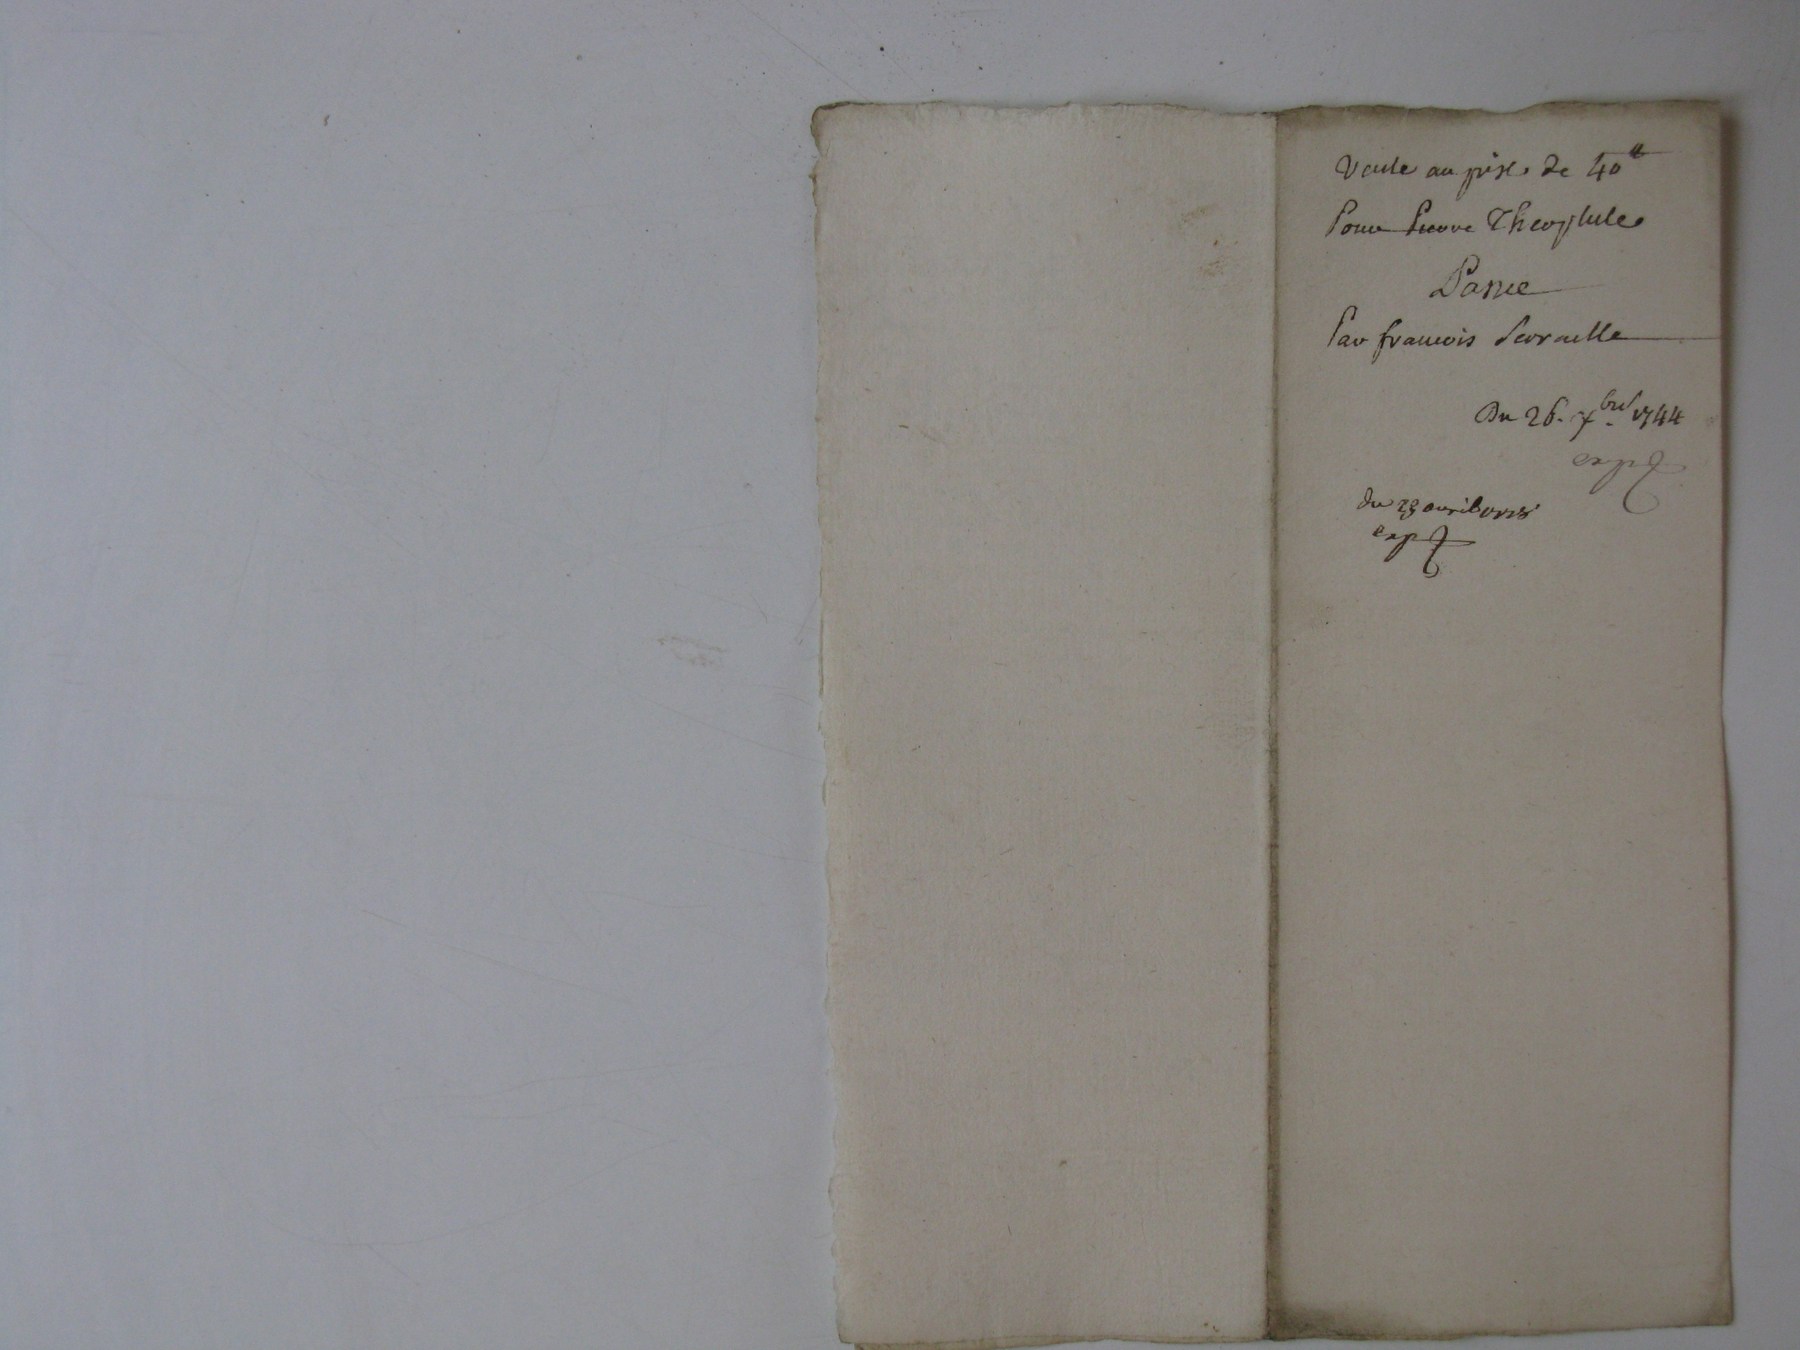 Vente au prix de 40ᵗᵗ
Pour Pierre Theophile
Parse
Par francois Scoraille
Du 26. 7.bre 1744
exp
du 23 avril
exp